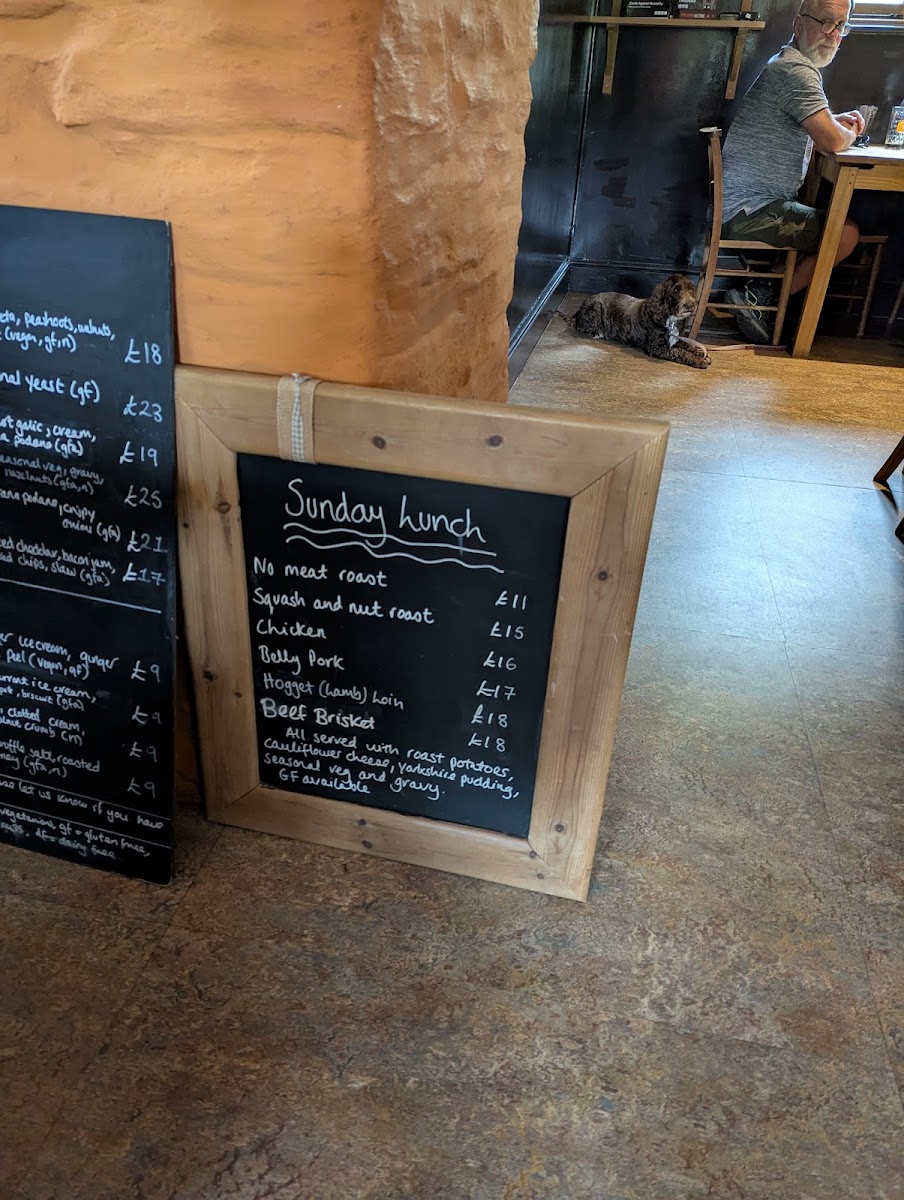 peashoots, walnuts,
(vegan, gf, n) £18
yeast (gf) £23
cream,
padano (gfa) £19
seasonal veg, gravy,
hazelnuts (gfa, n) £25
padano, crispy
onion (gfa) £21
cheddar, bacon jam,
chips, slaw (gfa) £17
ice cream, ginger
(vegan, gf) £9
ice cream,
biscuit (gfa) £9
clotted cream,
crumb (n) £9
salt, roasted
(gfa, n) £9
let us know if you have
vegetarian, gf = gluten free,
df = dairy free
Sunday Lunch
No meat roast £11
Squash and nut roast £15
Chicken £16
Belly Pork £17
Hogget (lamb) Loin £18
Beef Brisket £18
All served with roast potatoes,
cauliflower cheese, Yorkshire pudding,
seasonal veg and gravy.
GF available
Cards Against Humanity